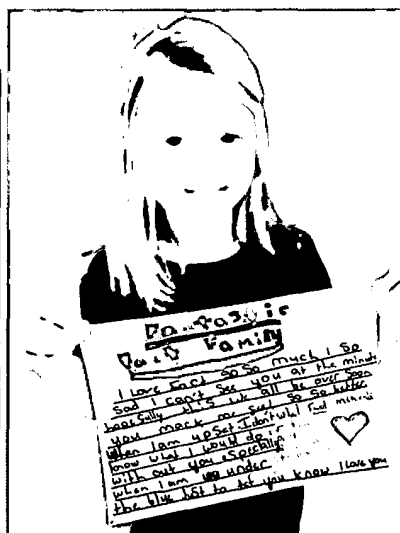 Fantastic
Fact Family
I Love Fact So So much I So
Sad I can't See you at the minute
hopefully this will all be over Soon
you mack me feel So So better
When I am upSet I don't what
know what I would do if
with out you especially
when I am under
the blve Just to let you know I Love you